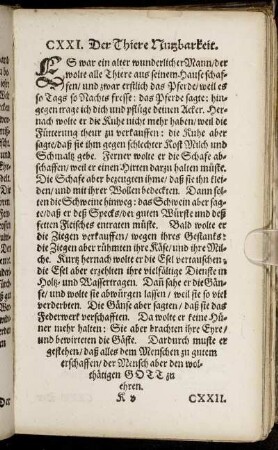 CXXI. Der Thiere Nutzbarkeit.
ES war ein alter wunderlicher Mann / der
wolte alle Thiere aus seinem Hause schaf-
fen / und zwar erstlich das Pferde / weil es
so Tags so Nachts fresse: das Pferde sagte: hin-
gegen trage ich dich und pflüge deinen Acker. Her-
nach wolte er die Kuhe nicht mehr haben / weil die
Fütterung theur zu verkauffen: die Kuhe aber
sagte / daß sie ihm gegen schlechter Kost Milch und
Schmaltz gebe. Ferner wolte er die Schafe ab-
schaffen / weil er einen Hirten darzu halten muste.
Die Schafe aber bezeugten ihme / daß sie ihn klei-
den / und mit ihrer Wollen bedeckten. Dann sol-
ten die Schweine hinweg: das Schwein aber sag-
te / daß er deß Specks / der guten Würste und deß
fetten Fleisches entraten müste. Bald wolte er
die Ziegen verkauffen / wegen ihres Gestanks:
die Ziegen aber rühmten ihre Käse / und ihre Mil-
che. Kurtz hernach wolte er die Esel vertauschen;
die Esel aber erzehlten ihre vielfältige Dienste in
Holtz- und Wassertragen. Dañ sahe er die Gän-
se / und wolte sie abwürgen lassen / weil sie so viel
verderbten. Die Gänse aber sagten / daß sie das
Federwerk verschafften. Da wolte er keine Hü-
ner mehr halten: Sie aber brachten ihre Eyre /
und bewirteten die Gäste. Dardurch muste er
gestehen / daß alles dem Menschen zu gutem
erschaffen / der Mensch aber den wol-
thätigen GOTT zu
ehren.
K v
CXXII.